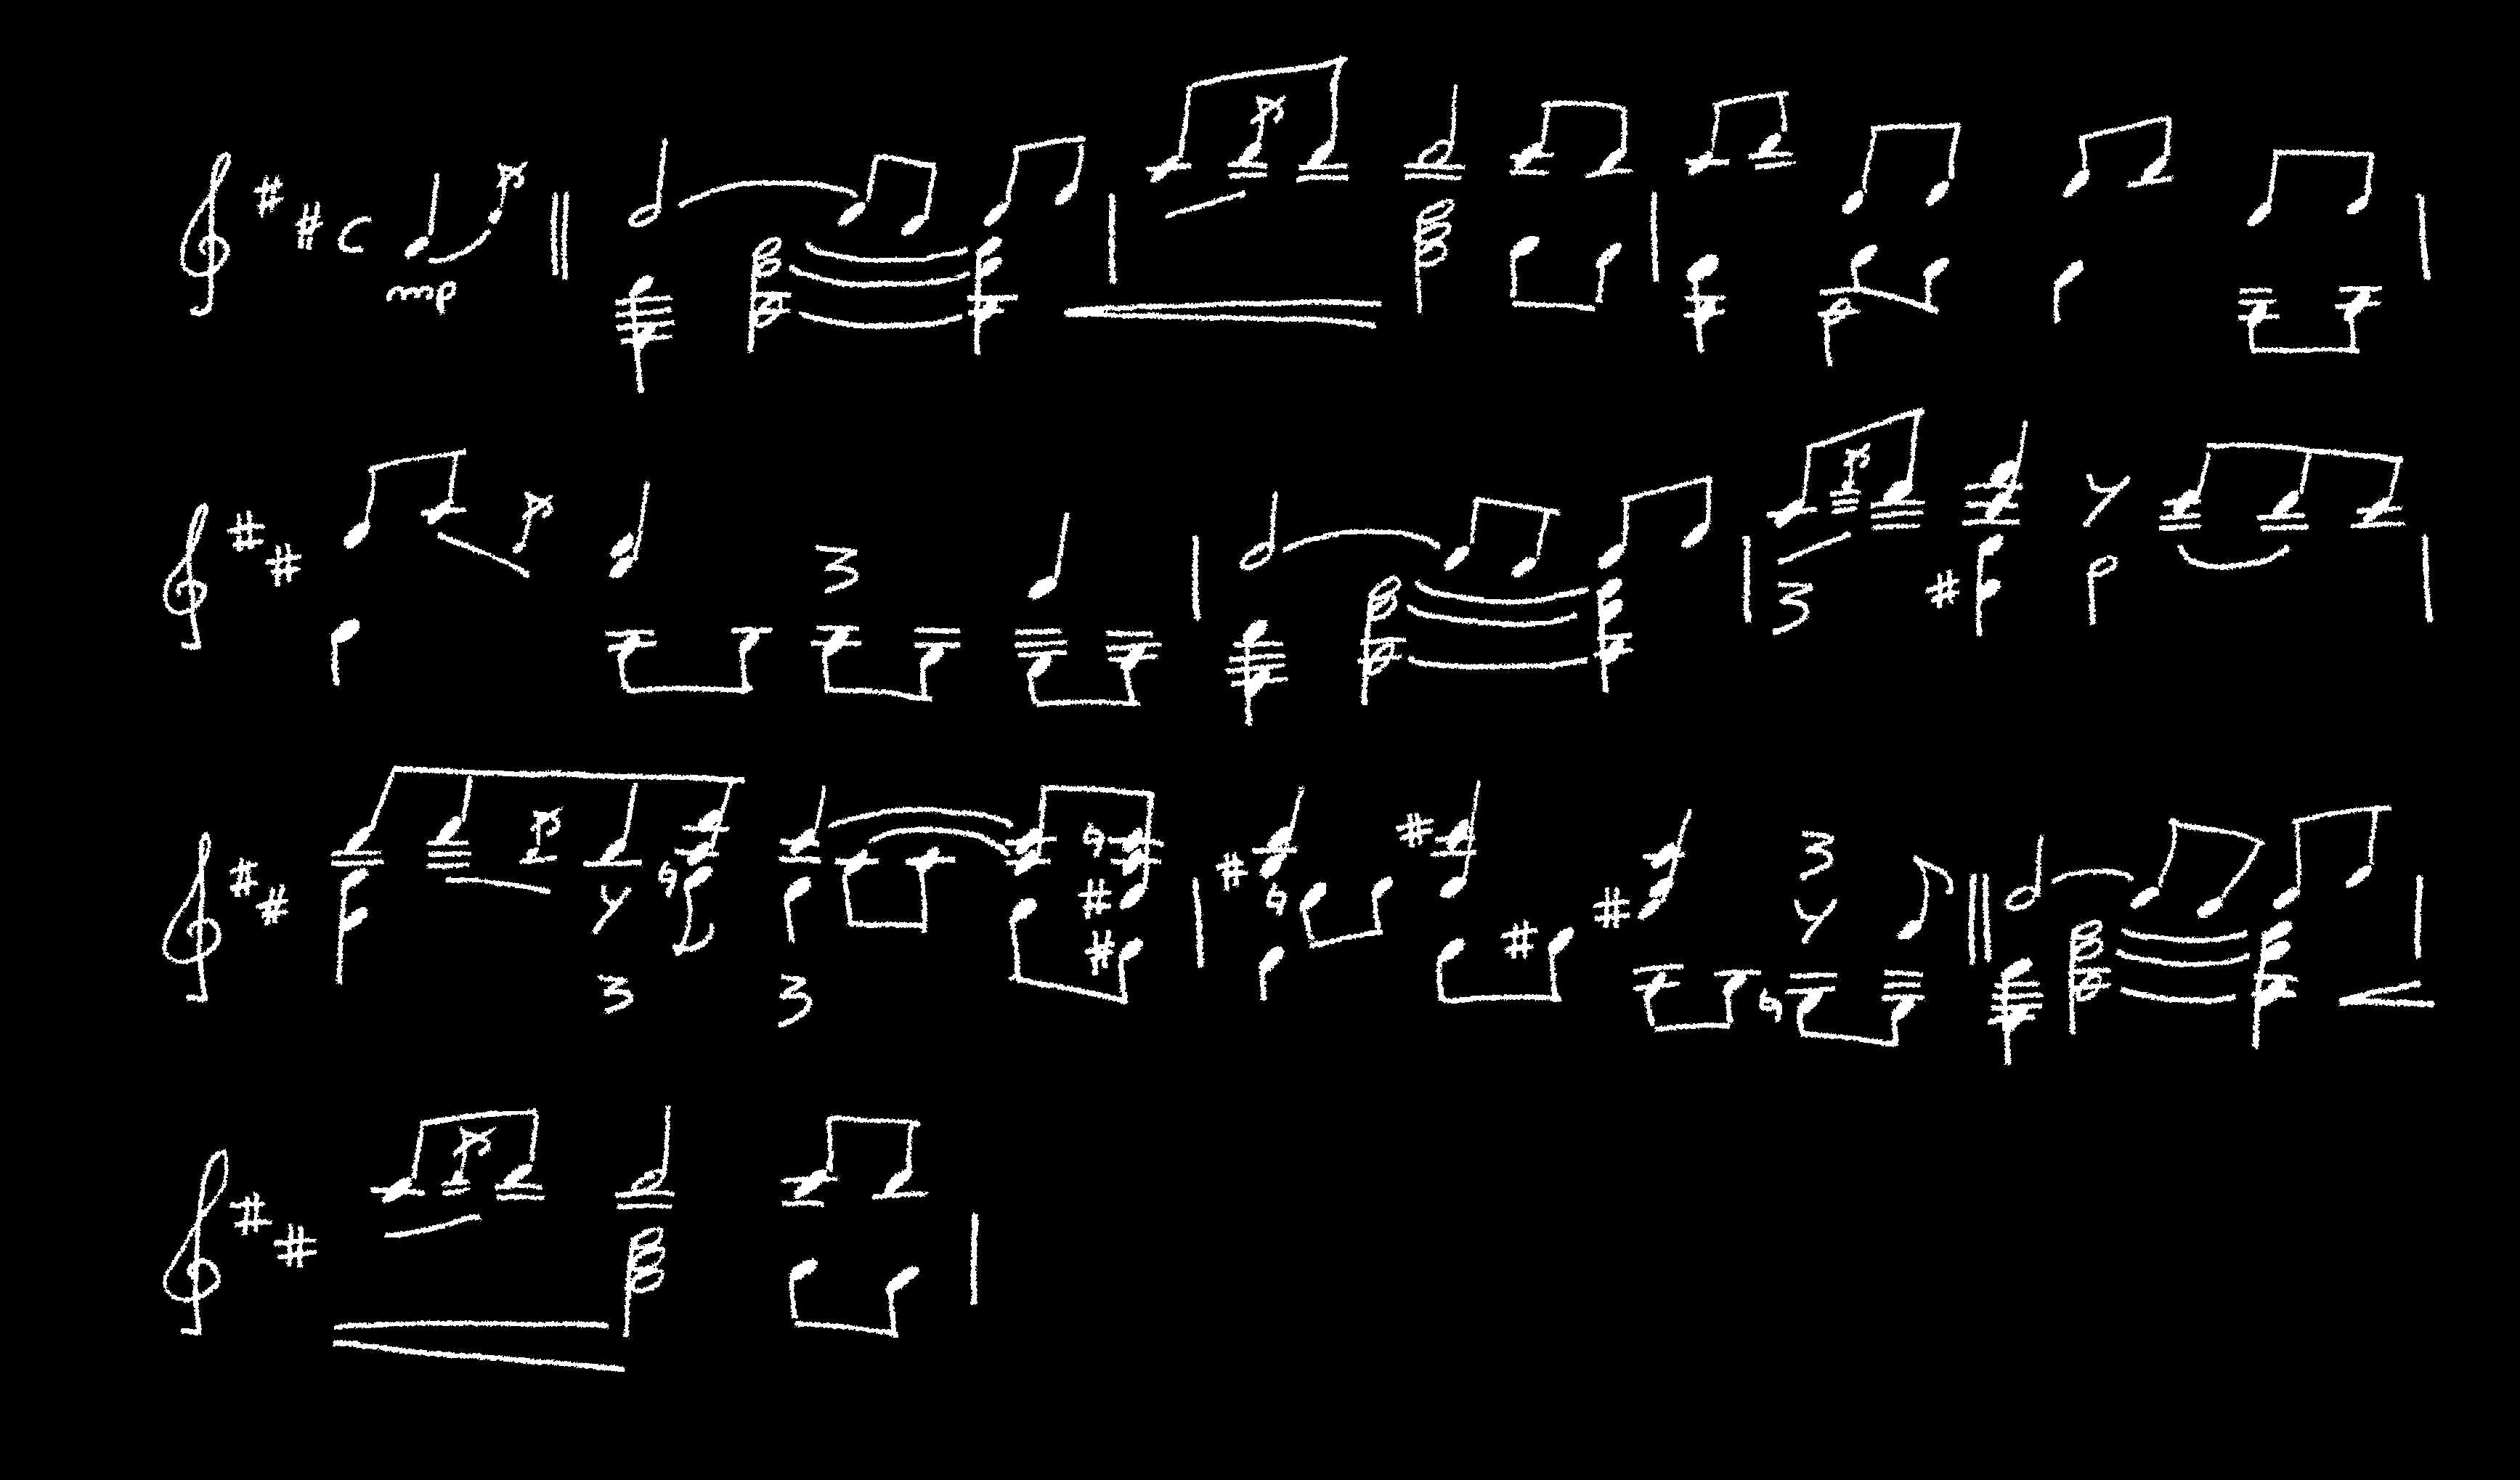 C
mp
3
3
3
3
3